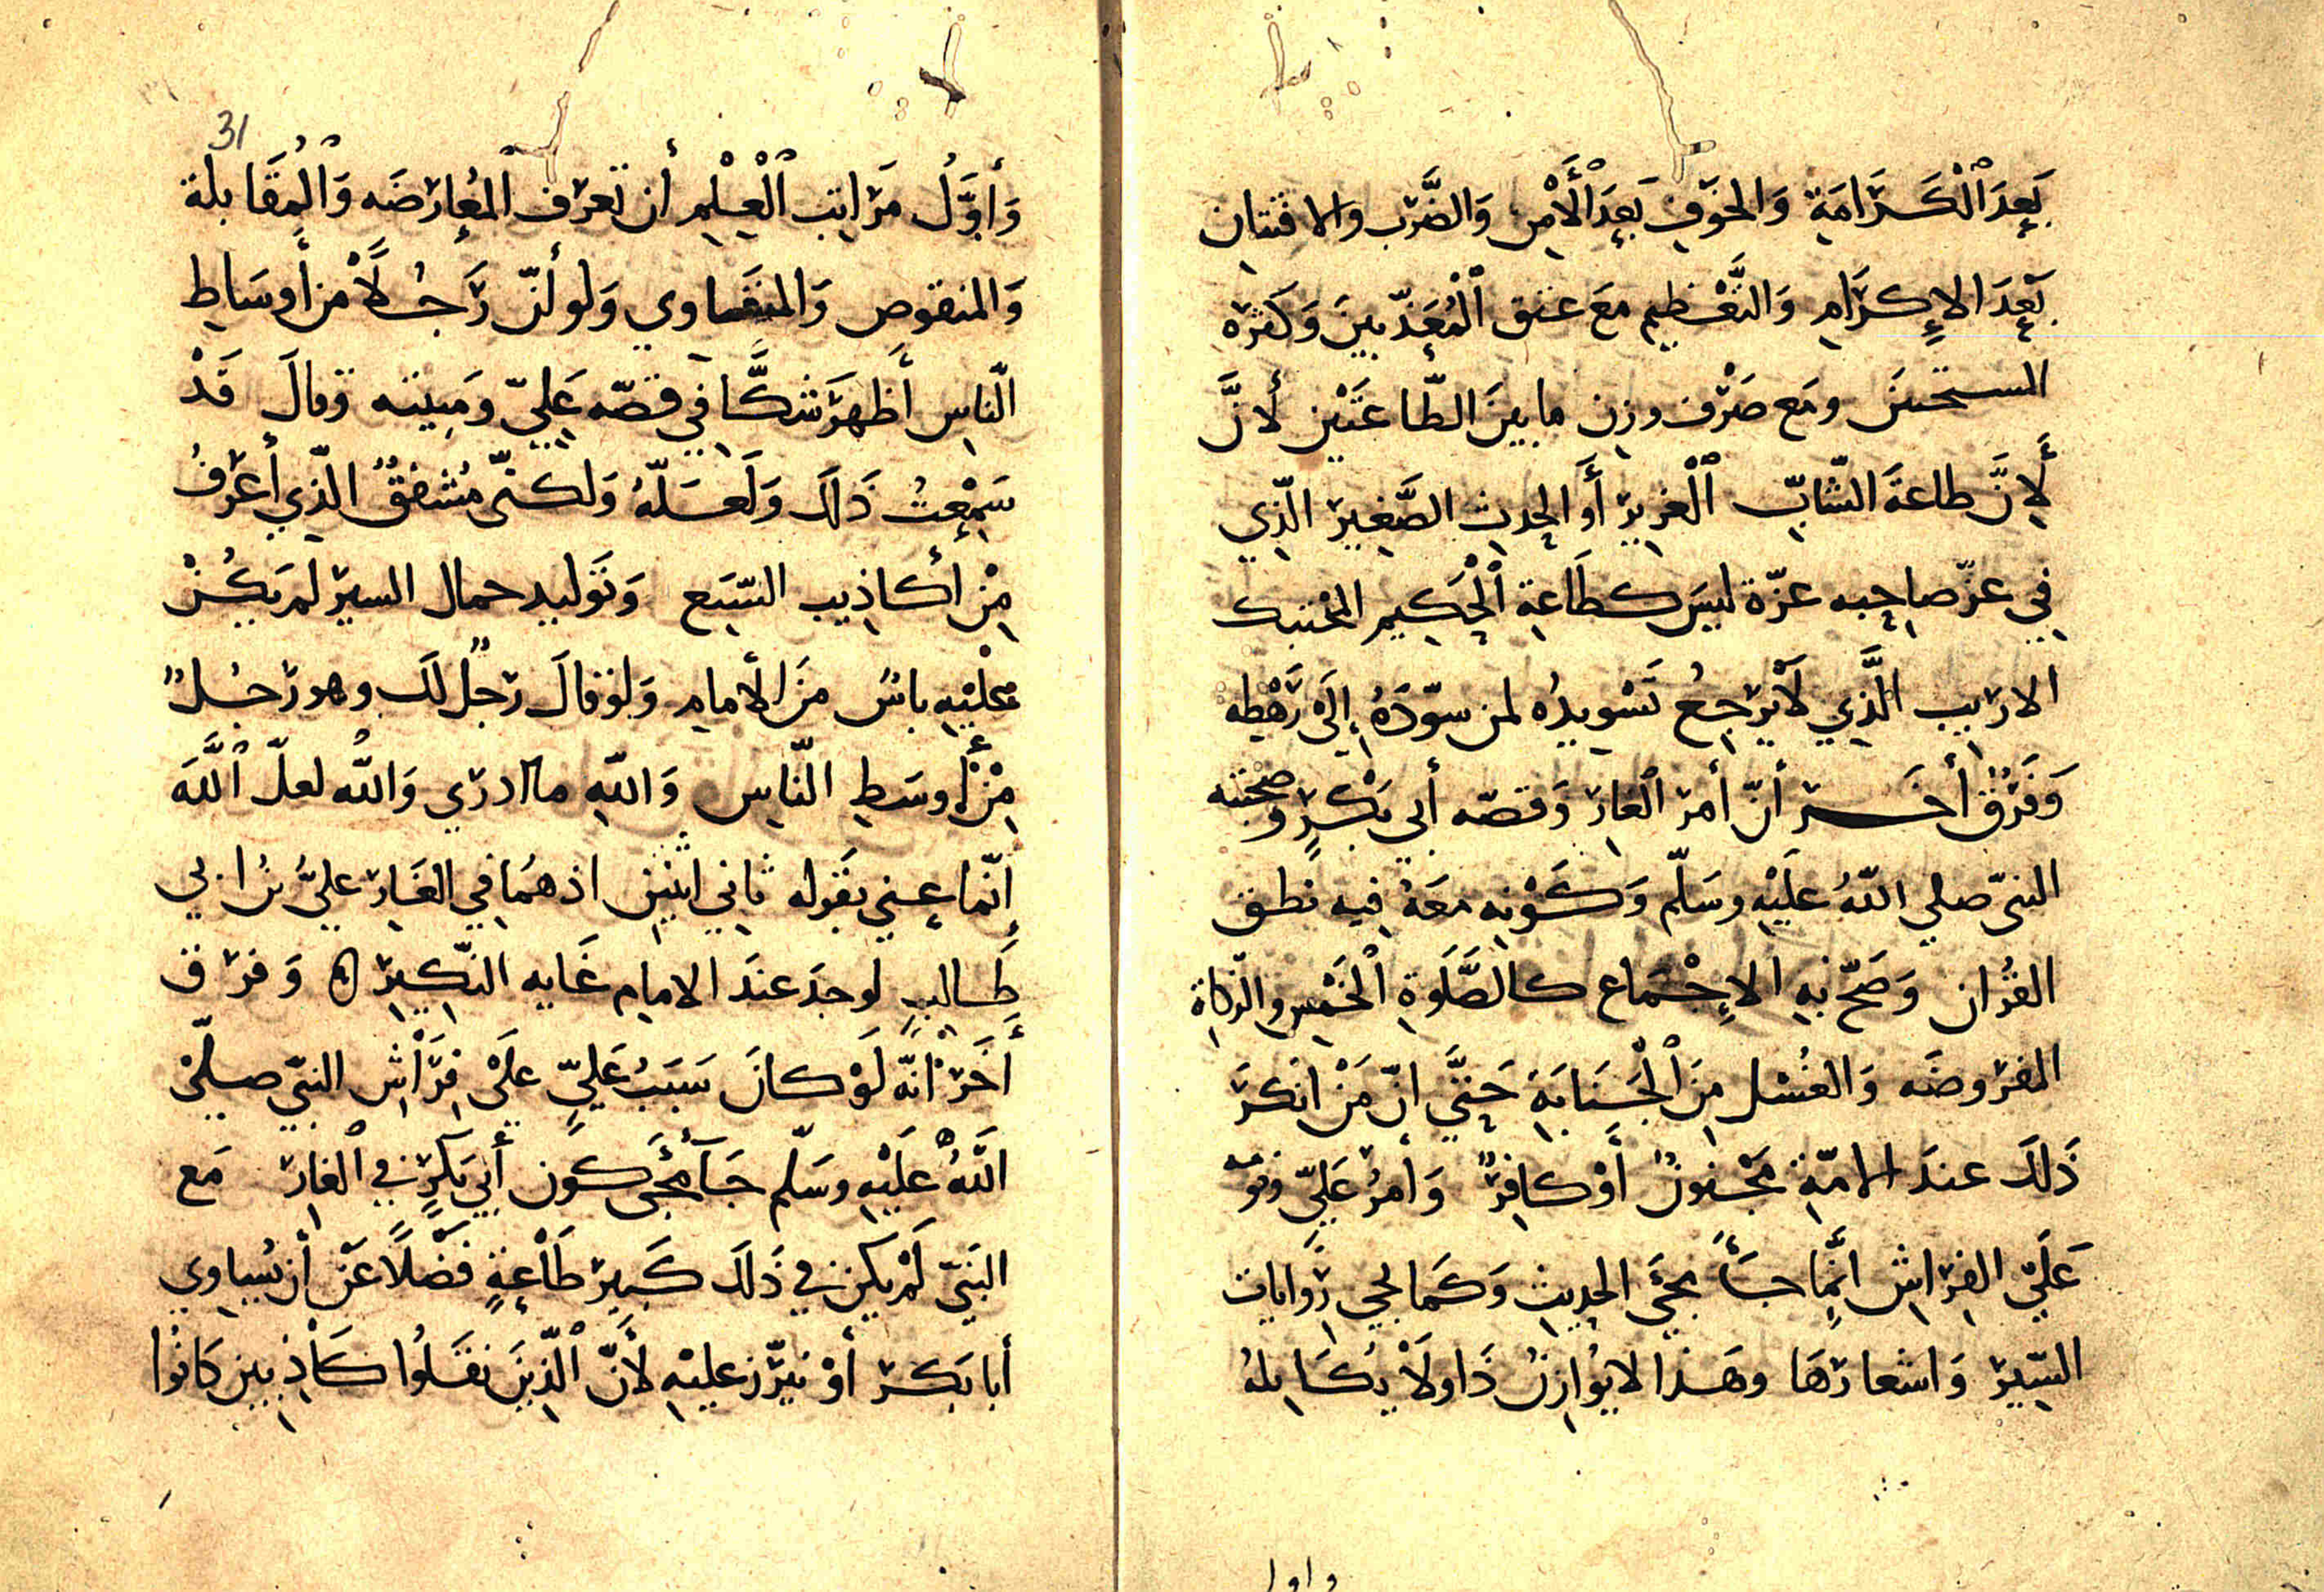 بَعدَ الْكَرَامَةِ وَالخوَفِ بَعدَ الْأَمْنِ وَالضَّرب والافتتان
بَعدَ الإكرَامِ وَالتَّعْظيم مَع عتق الْمُعَذّبينَ وَكَثرَه
المستحسَن ومَع صَرْف وزن ما بينَ الطّاعَتَيْن لأنَّ
لِأَنَّ طاعةَ الشّابّ الْغرير أَو الحِدِث الصَّغِير الّذِي
فِي عزّ صاحِبه عزّة ليسَ كطَاعَةِ الْحَكِيمِ المُحْتنِك
الاريب الَّذِي لَا يَرجِعُ تَسْوِيدُه لمن سوّدَهُ إلَى رَهْطِه
وَفَرْقٌ أخَــر أنّ أمر الغار وَقصّه أبي بَكْرٍ وصحبته
النبىّ صلى اللّهُ علَيْهِ وسَلّم وَكَوْنِهِ معَهُ فيه نَطق
القُران وَصَحّ بِهِ الإجْمَاع كالصَّلَوةِ الْخَمْسِ والزكاةِ
المفروضَه وَالغُسْل مِنَ الْجَنَابَةِ حَتَّى انّ مَنْ انكرَ
ذَلكَ عندَ الامّةِ مَجْنونٌ أَوْ كافِرٌ وَأمرُ عَلىّ ونَوْمه
عَلَى الفِرَاشِ انّما جَـأَ مجَىَ الحديثِ وَكَما يجي رِوَايات
السِّيَر وَاشعارهَا وهَذا لا يُوازِنُ ذَا ولَا يُكَايلهُ
واول
31
وَأَوّلُ مَراتِب الْعِلْمِ أن تَعرف الْمعَارضَه وَالْمُقَابلة
وَالمنقوص وَالمتسَاوي وَلو أنّ رَجُـلًا من أَوسَاطِ
النّاسِ أَظهَرَ شَكًّا فِي قصّه عَلِىّ ومَبِيته وقالَ قَدْ
سَمِعْتُ ذَلكَ وَلَعَـلّهُ وَلكنّى مُشفقٌ الّذِي أَعْرفُ
مِنْ أَكاذِيب الشّيَع وَتَوليد حمال السير لمر يَكُنْ
عليْهِ بَاسٌ مِنَ الأمام وَلَوْ قالَ رَجلٌ لكَ وهو رَجُـلٌ
مِنْ أوسَطِ النّاسِ وَاللّهِ ما ادرِي وَاللّه لعلّ اللَّهَ
إنّما عنِي بقَوله ثانِي اثنَينِ اذ همَا في الغَارِ علىُّ بنُ ابي
طَـالبٍ لوجدَ عندَ الامامِ غَايه النّكِيرِ ه وَفرق
أَخَرْ انّه لَوْ كانَ سَبَبُ عَلىٍّ عَلَى فِرَاشِ النبىّ صلّى
اللَّهُ عَلَيْهِ وسَلّم جَـآ مجَى كَون أبِي بَكرٍ في الغار مَع
النَبَىّ لَمْ يَكُن في ذَلكَ كَبِير طَاعةٍ فَضْلًا عَنْ أن يُسَاوِي
أبا بَكر أوْ يبَرّز علَيْهِ لأَنّ الّذِينَ نقَـلُوا كَاذِبين كَانُوا